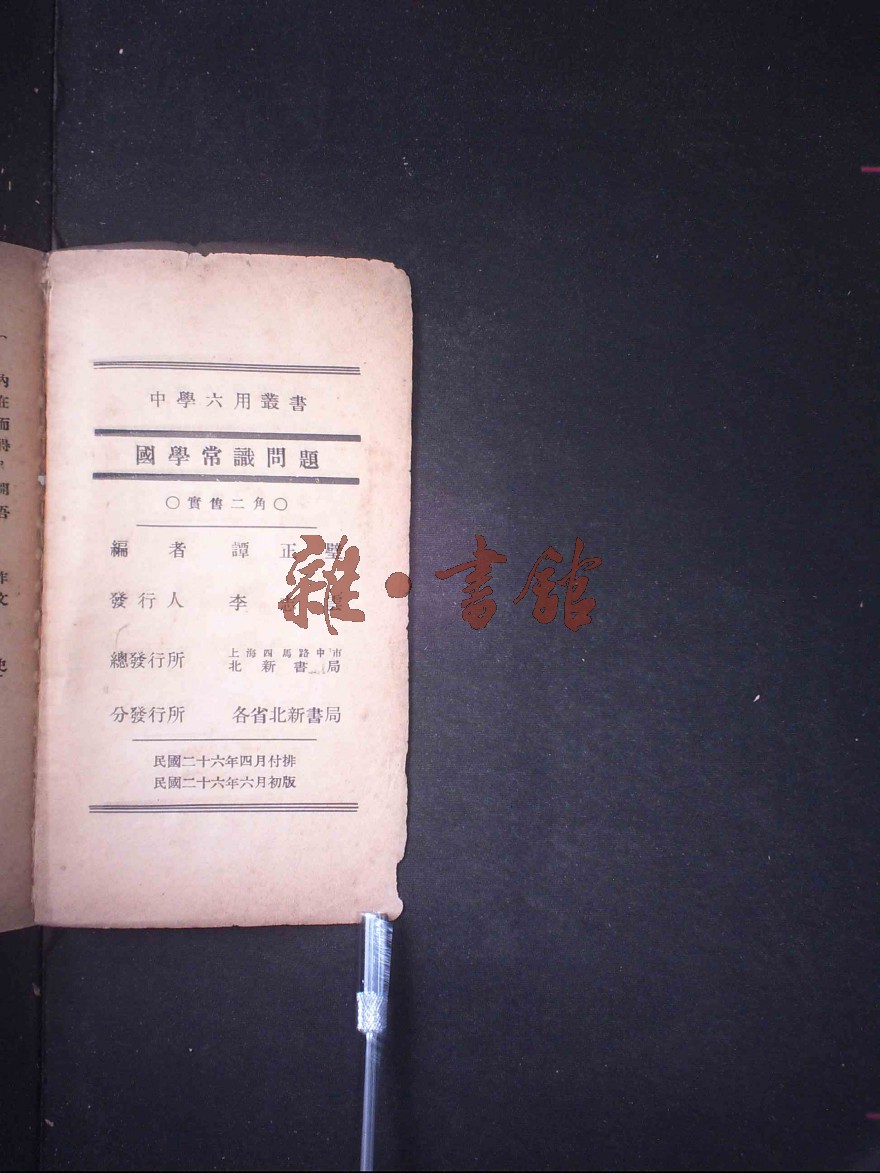 中學六用叢書
國學常識問題
○實售二角○
編者 譚正璧
發行人 李志雲
總發行所 上海四馬路中市
北新書局
分發行所 各省北新書局
民國二十六年四月付排
民國二十六年六月初版
雜·書館
内在而得
作文